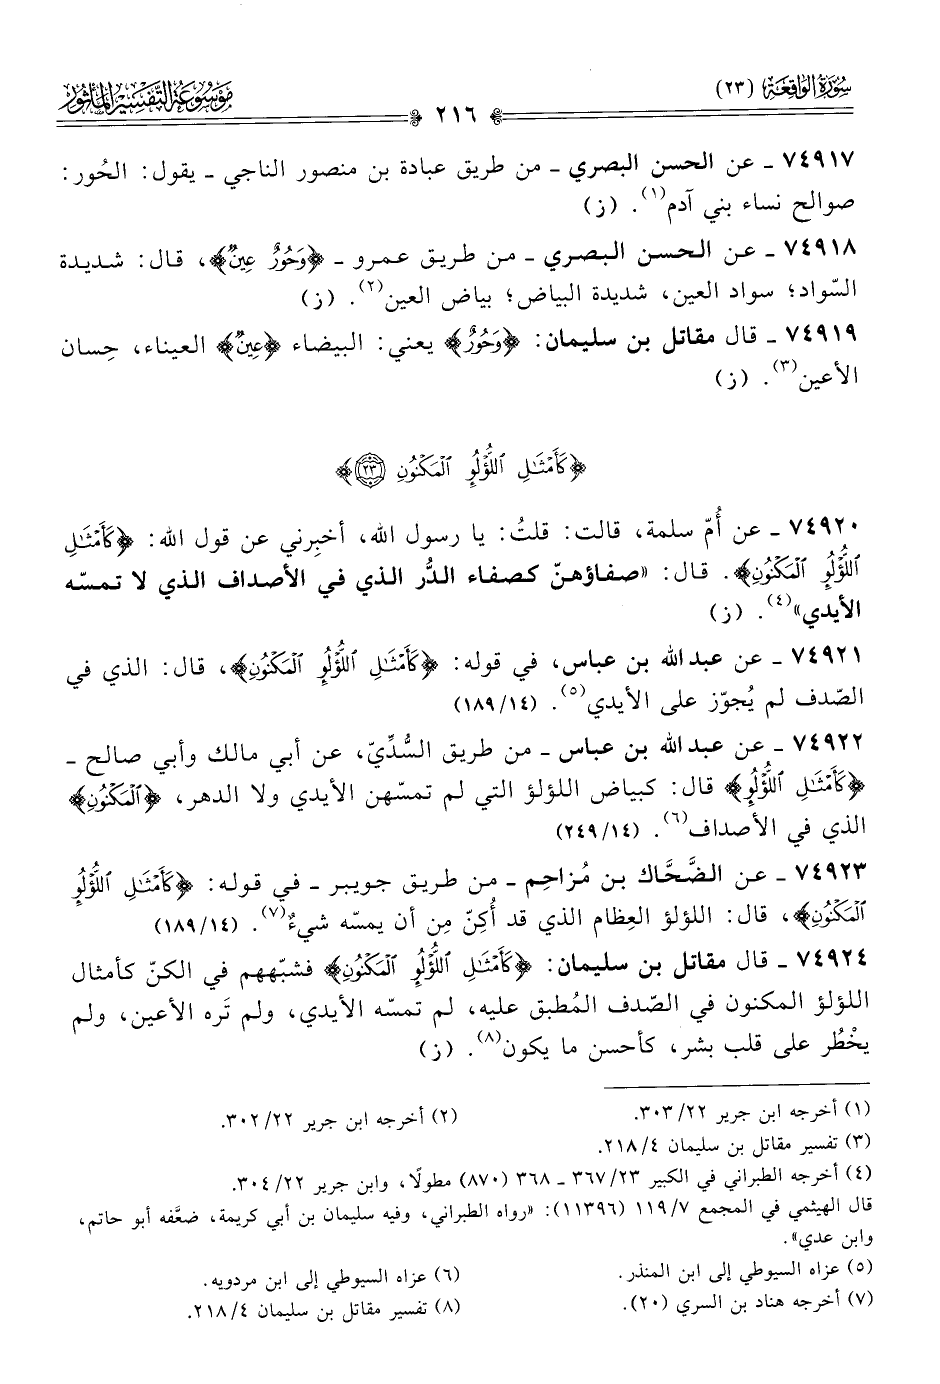 سُورَةُ الوَاقِعَة (٢٣)
٢١٦
مَوْسُوعَة التَّفْسِيرِ المَأْثُور
٧٤٩١٧ ـ عن الحسن البصري ـ من طريق عبادة بن منصور الناجي ـ يقول: الحُور:
صوالح نساء بني آدم(١). (ز)
٧٤٩١٨ ـ عن الحسن البصري ـ من طريق عمرو ـ ﴿وَحُورٌ عِينٌ﴾، قال: شديدة
السّواد؛ سواد العين، شديدة البياض؛ بياض العين(٢). (ز)
٧٤٩١٩ ـ قال مقاتل بن سليمان: ﴿وَحُورٌ﴾ يعني: البيضاء ﴿عِينٌ﴾ العيناء، حِسان
الأعين(٣). (ز)
﴿كَأَمْثَٰلِ اللُّؤْلُؤِ الْمَكْنُونِ ٢٣﴾
٧٤٩٢٠ ـ عن أُمّ سلمة، قالت: قلتُ: يا رسول الله، أخبِرني عن قول الله: ﴿كَأَمْثَٰلِ
اللُّؤْلُؤِ الْمَكْنُونِ﴾. قال: «صفاؤهنّ كصفاء الدُّر الذي في الأصداف الذي لا تمسّه
الأيدي»(٤). (ز)
٧٤٩٢١ ـ عن عبد الله بن عباس، في قوله: ﴿كَأَمْثَٰلِ اللُّؤْلُؤِ الْمَكْنُونِ﴾، قال: الذي في
الصّدف لم يُجوّز على الأيدي(٥). (١٤/١٨٩)
٧٤٩٢٢ ـ عن عبد الله بن عباس ـ من طريق السُّدِّيّ، عن أبي مالك وأبي صالح ـ
﴿كَأَمْثَٰلِ اللُّؤْلُؤِ﴾ قال: كبياض اللؤلؤ التي لم تمسّهن الأيدي ولا الدهر، ﴿الْمَكْنُونِ﴾
الذي في الأصداف(٦). (١٤/٢٤٩)
٧٤٩٢٣ ـ عن الضَّحَّاك بن مُزاحِم ـ من طريق جويبر ـ في قوله: ﴿كَأَمْثَٰلِ اللُّؤْلُؤِ
الْمَكْنُونِ﴾، قال: اللؤلؤ العِظام الذي قد أُكِنّ مِن أن يمسّه شيءٌ(٧). (١٤/١٨٩)
٧٤٩٢٤ ـ قال مقاتل بن سليمان: ﴿كَأَمْثَٰلِ اللُّؤْلُؤِ الْمَكْنُونِ﴾ فشبّههم في الكنّ كأمثال
اللؤلؤ المكنون في الصّدف المُطبق عليه، لم تمسّه الأيدي، ولم تَره الأعين، ولم
يخْطُر على قلب بشر، كأحسن ما يكون(٨). (ز)
(١) أخرجه ابن جرير ٢٢/٣٠٣.
(٢) أخرجه ابن جرير ٢٢/٣٠٢.
(٣) تفسير مقاتل بن سليمان ٤/٢١٨.
(٤) أخرجه الطبراني في الكبير ٢٣/٣٦٧ ـ ٣٦٨ (٨٧٠) مطولًا، وابن جرير ٢٢/٣٠٤.
قال الهيثمي في المجمع ٧/١١٩ (١١٣٩٦): «رواه الطبراني، وفيه سليمان بن أبي كريمة، ضعَّفه أبو حاتم،
وابن عدي».
(٥) عزاه السيوطي إلى ابن المنذر.
(٦) عزاه السيوطي إلى ابن مردويه.
(٧) أخرجه هناد بن السري (٢٠).
(٨) تفسير مقاتل بن سليمان ٤/٢١٨.